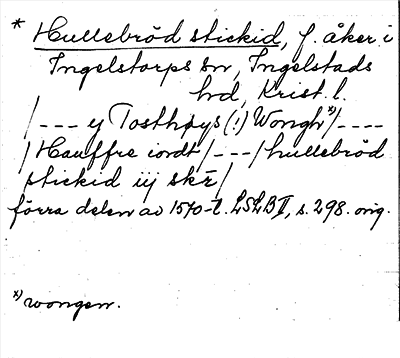 * Hullebröd stickid, f. åker i
Ingelstorps sn, Ingelstads
hd, Krist. l.
/--- y Tosthøys (!) Wongh*)/----
/Hauffre iordt/---/hullebröd
stickid iij skr̄/
förra delen av 1570-t. LSLB II, s. 298. orig.
*) wongen.